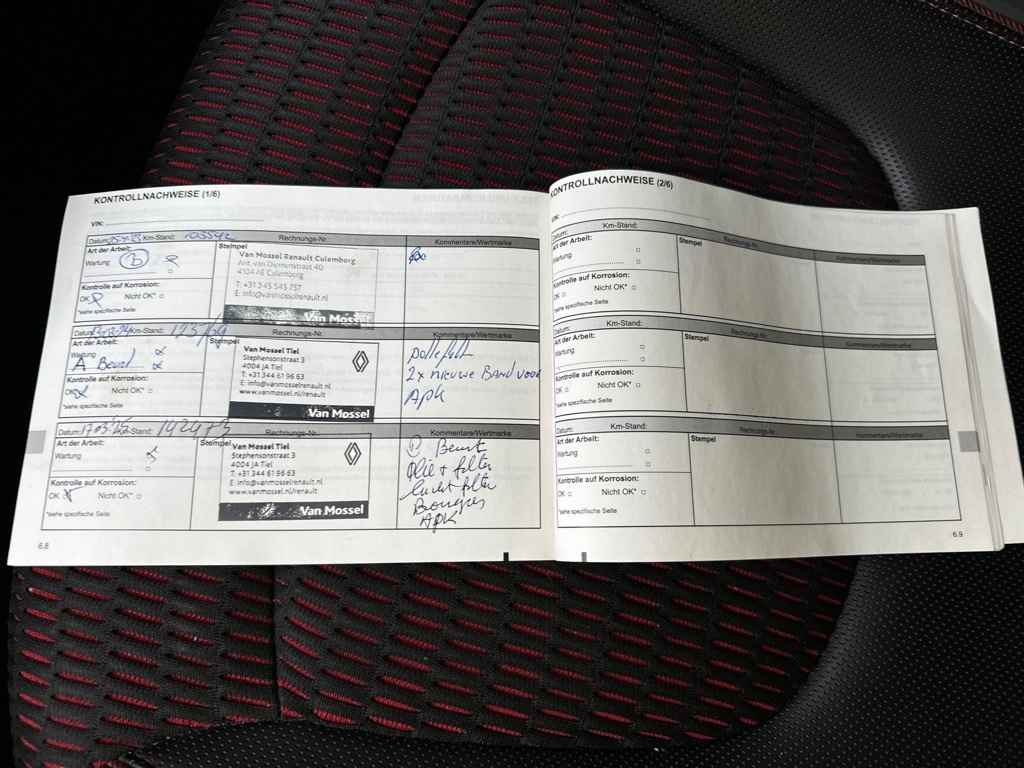 KONTROLLNACHWEISE (1/6)
VIN:
Datum: Km-Stand: 103542 Rechnungs-Nr. Kommentare/Wertmarke
Art der Arbeit: Stempel
Wartung b
Kontrolle auf Korrosion:
OK Nicht OK*
*siehe spezifische Seite
Van Mossel Renault Culemborg
Ant. van Diemenstraat 40
Culemborg
T: +31 345 545 757
E: info@vanmosselrenault.nl
Van Mossel
Datum: Km-Stand: Rechnungs-Nr. Kommentare/Wertmarke
Art der Arbeit: Stempel
Wartung
A Beurt
Kontrolle auf Korrosion:
OK Nicht OK*
*siehe spezifische Seite
Van Mossel Tiel
Stephensonstraat 3
4004 JA Tiel
T: +31 344 61 96 63
E: info@vanmosselrenault.nl
www.vanmosselrenault.nl/renault
Van Mossel
2x nieuwe Band voor
Apk
Datum: 17-03-25 Km-Stand: Rechnungs-Nr. Kommentare/Wertmarke
Art der Arbeit: Stempel
Wartung
Kontrolle auf Korrosion:
OK Nicht OK*
*siehe spezifische Seite
Van Mossel Tiel
Stephensonstraat 3
4004 JA Tiel
T: +31 344 61 96 63
E: info@vanmosselrenault.nl
www.vanmossel.nl/renault
Van Mossel
Beurt
Olie + filter
lucht filter
Bougies
APK
6.8
KONTROLLNACHWEISE (2/6)
VIN:
Datum: Km-Stand: Rechnungs-Nr. Kommentare/Wertmarke
Art der Arbeit: Stempel
Wartung
Kontrolle auf Korrosion:
OK Nicht OK*
*siehe spezifische Seite
Datum: Km-Stand: Rechnungs-Nr. Kommentare/Wertmarke
Art der Arbeit: Stempel
Wartung
Kontrolle auf Korrosion:
OK Nicht OK*
*siehe spezifische Seite
Datum: Km-Stand: Rechnungs-Nr. Kommentare/Wertmarke
Art der Arbeit: Stempel
Wartung
Kontrolle auf Korrosion:
OK Nicht OK*
*siehe spezifische Seite
6.9